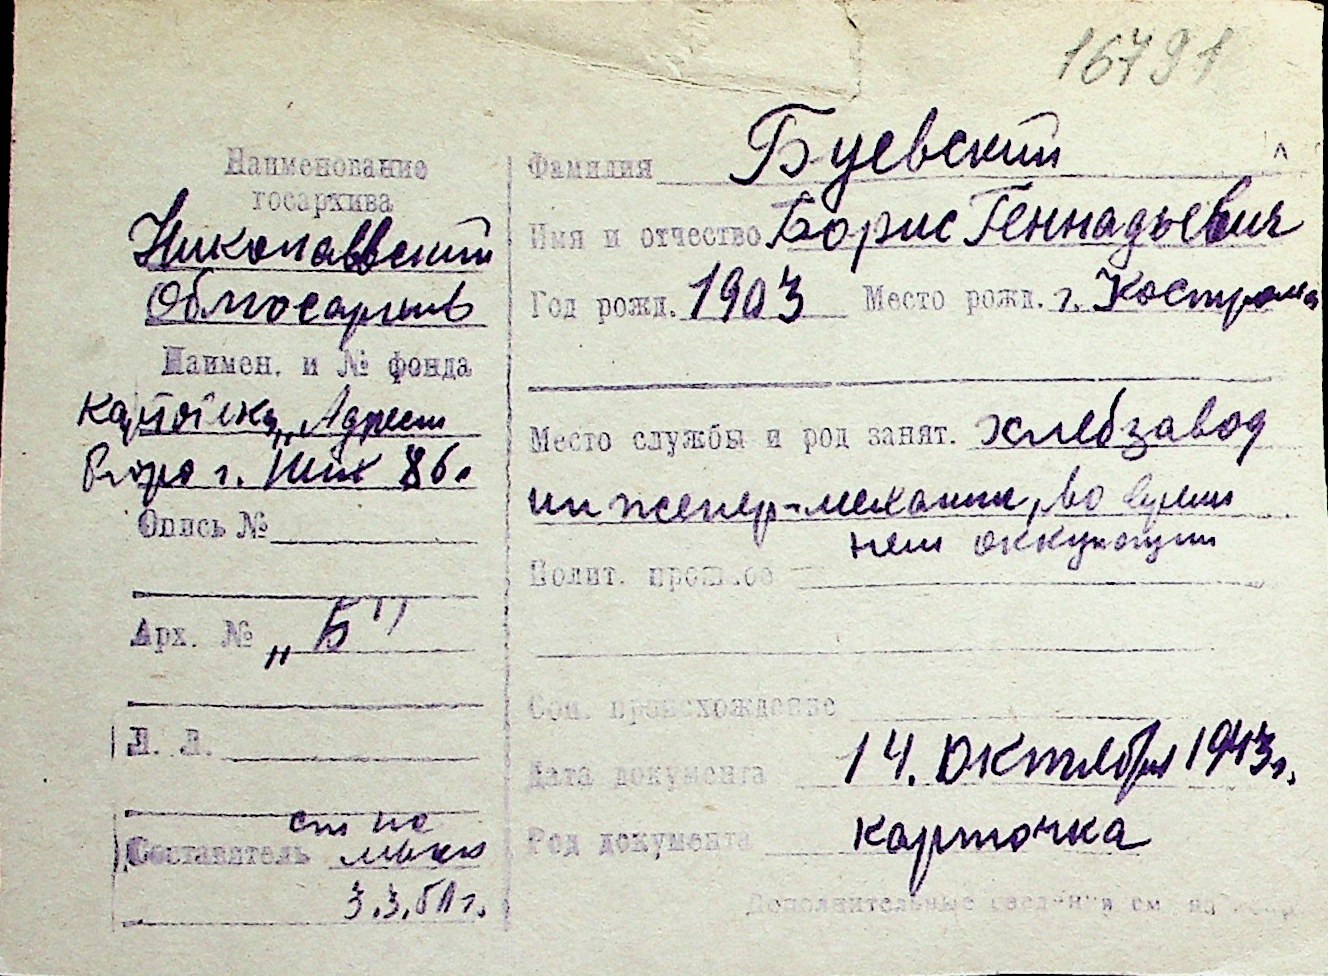 16791
Наименование
госархива
Николаевский
Облгосархив
Наимен. и № фонда
картотека „Адресн
бюро г. Ник
Опись №
Арх. № „Б"
Л. Л.
Составитель
3.3.
Фамилия Буевский
Имя и отчество Борис Геннадьевич
Год рожд. 1903 Место рожд. г. Кострома
Место службы и род занят. хлебзавод
инженер-механик, во время
нем оккупации
Полит. прошлое
Соц. происхождение
Дата документа 14. октября 1943г.
Род документа карточка
Дополнительные сведения см. на